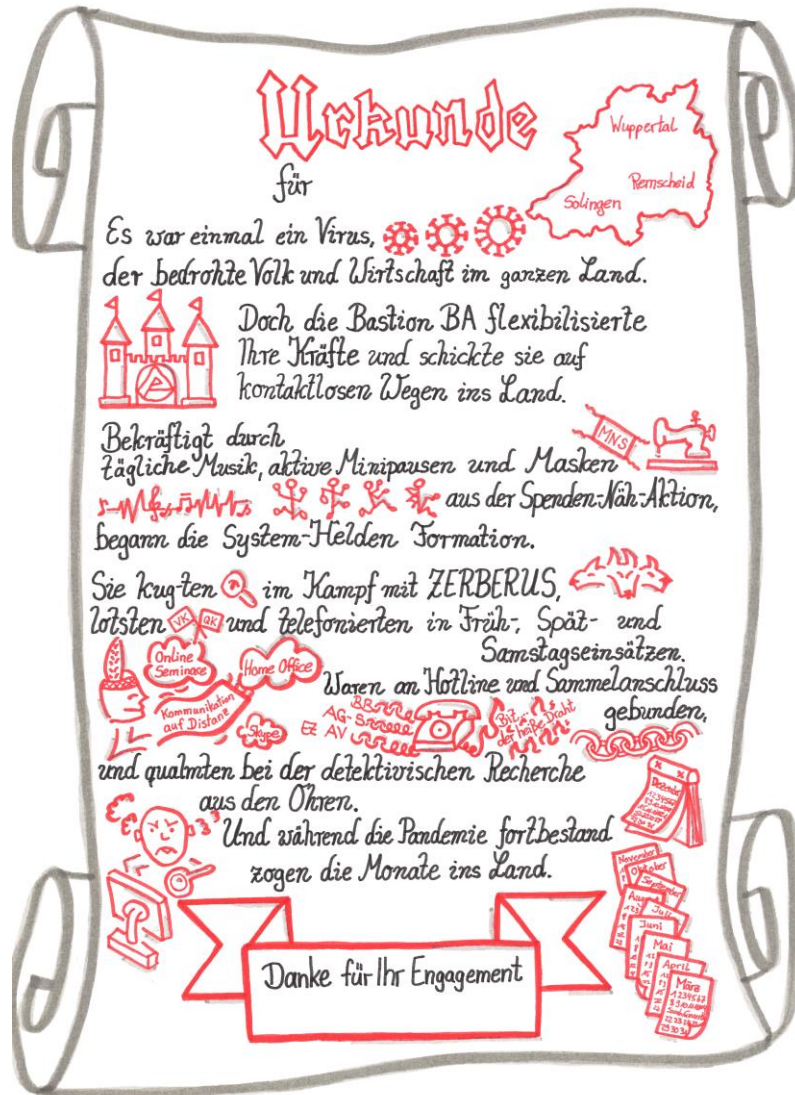 Urkunde
für
Wuppertal
Remscheid
Solingen
Es war einmal ein Virus,
der bedrohte Volk und Wirtschaft im ganzen Land.
Doch die Bastion BA flexibilisierte
Ihre Kräfte und schickte sie auf
kontaktlosen Wegen ins Land.
Bekräftigt durch
tägliche Musik, aktive Minipausen und Masken
MNS
aus der Spenden-Näh-Aktion,
begann die System-Helden Formation.
Sie kug-ten im Kampf mit ZERBERUS,
lotsten VK QK und telefonierten in Früh-, Spät- und
Samstagseinsätzen.
Online
Seminare
Home Office
Kommunikation
auf Distanz
Skype
Waren an Hotline und Sammelanschluss
gebunden,
BB
AG-S
EZ AV
Bit,
der heiße Draht
und qualmten bei der detektivischen Recherche
aus den Ohren.
Und während die Pandemie fortbestand
zogen die Monate ins Land.
Dezember
November
Oktober
September
August
Juli
Juni
Mai
April
März
1 2 3 4 5 6 7
29 30 31
Danke für Ihr Engagement